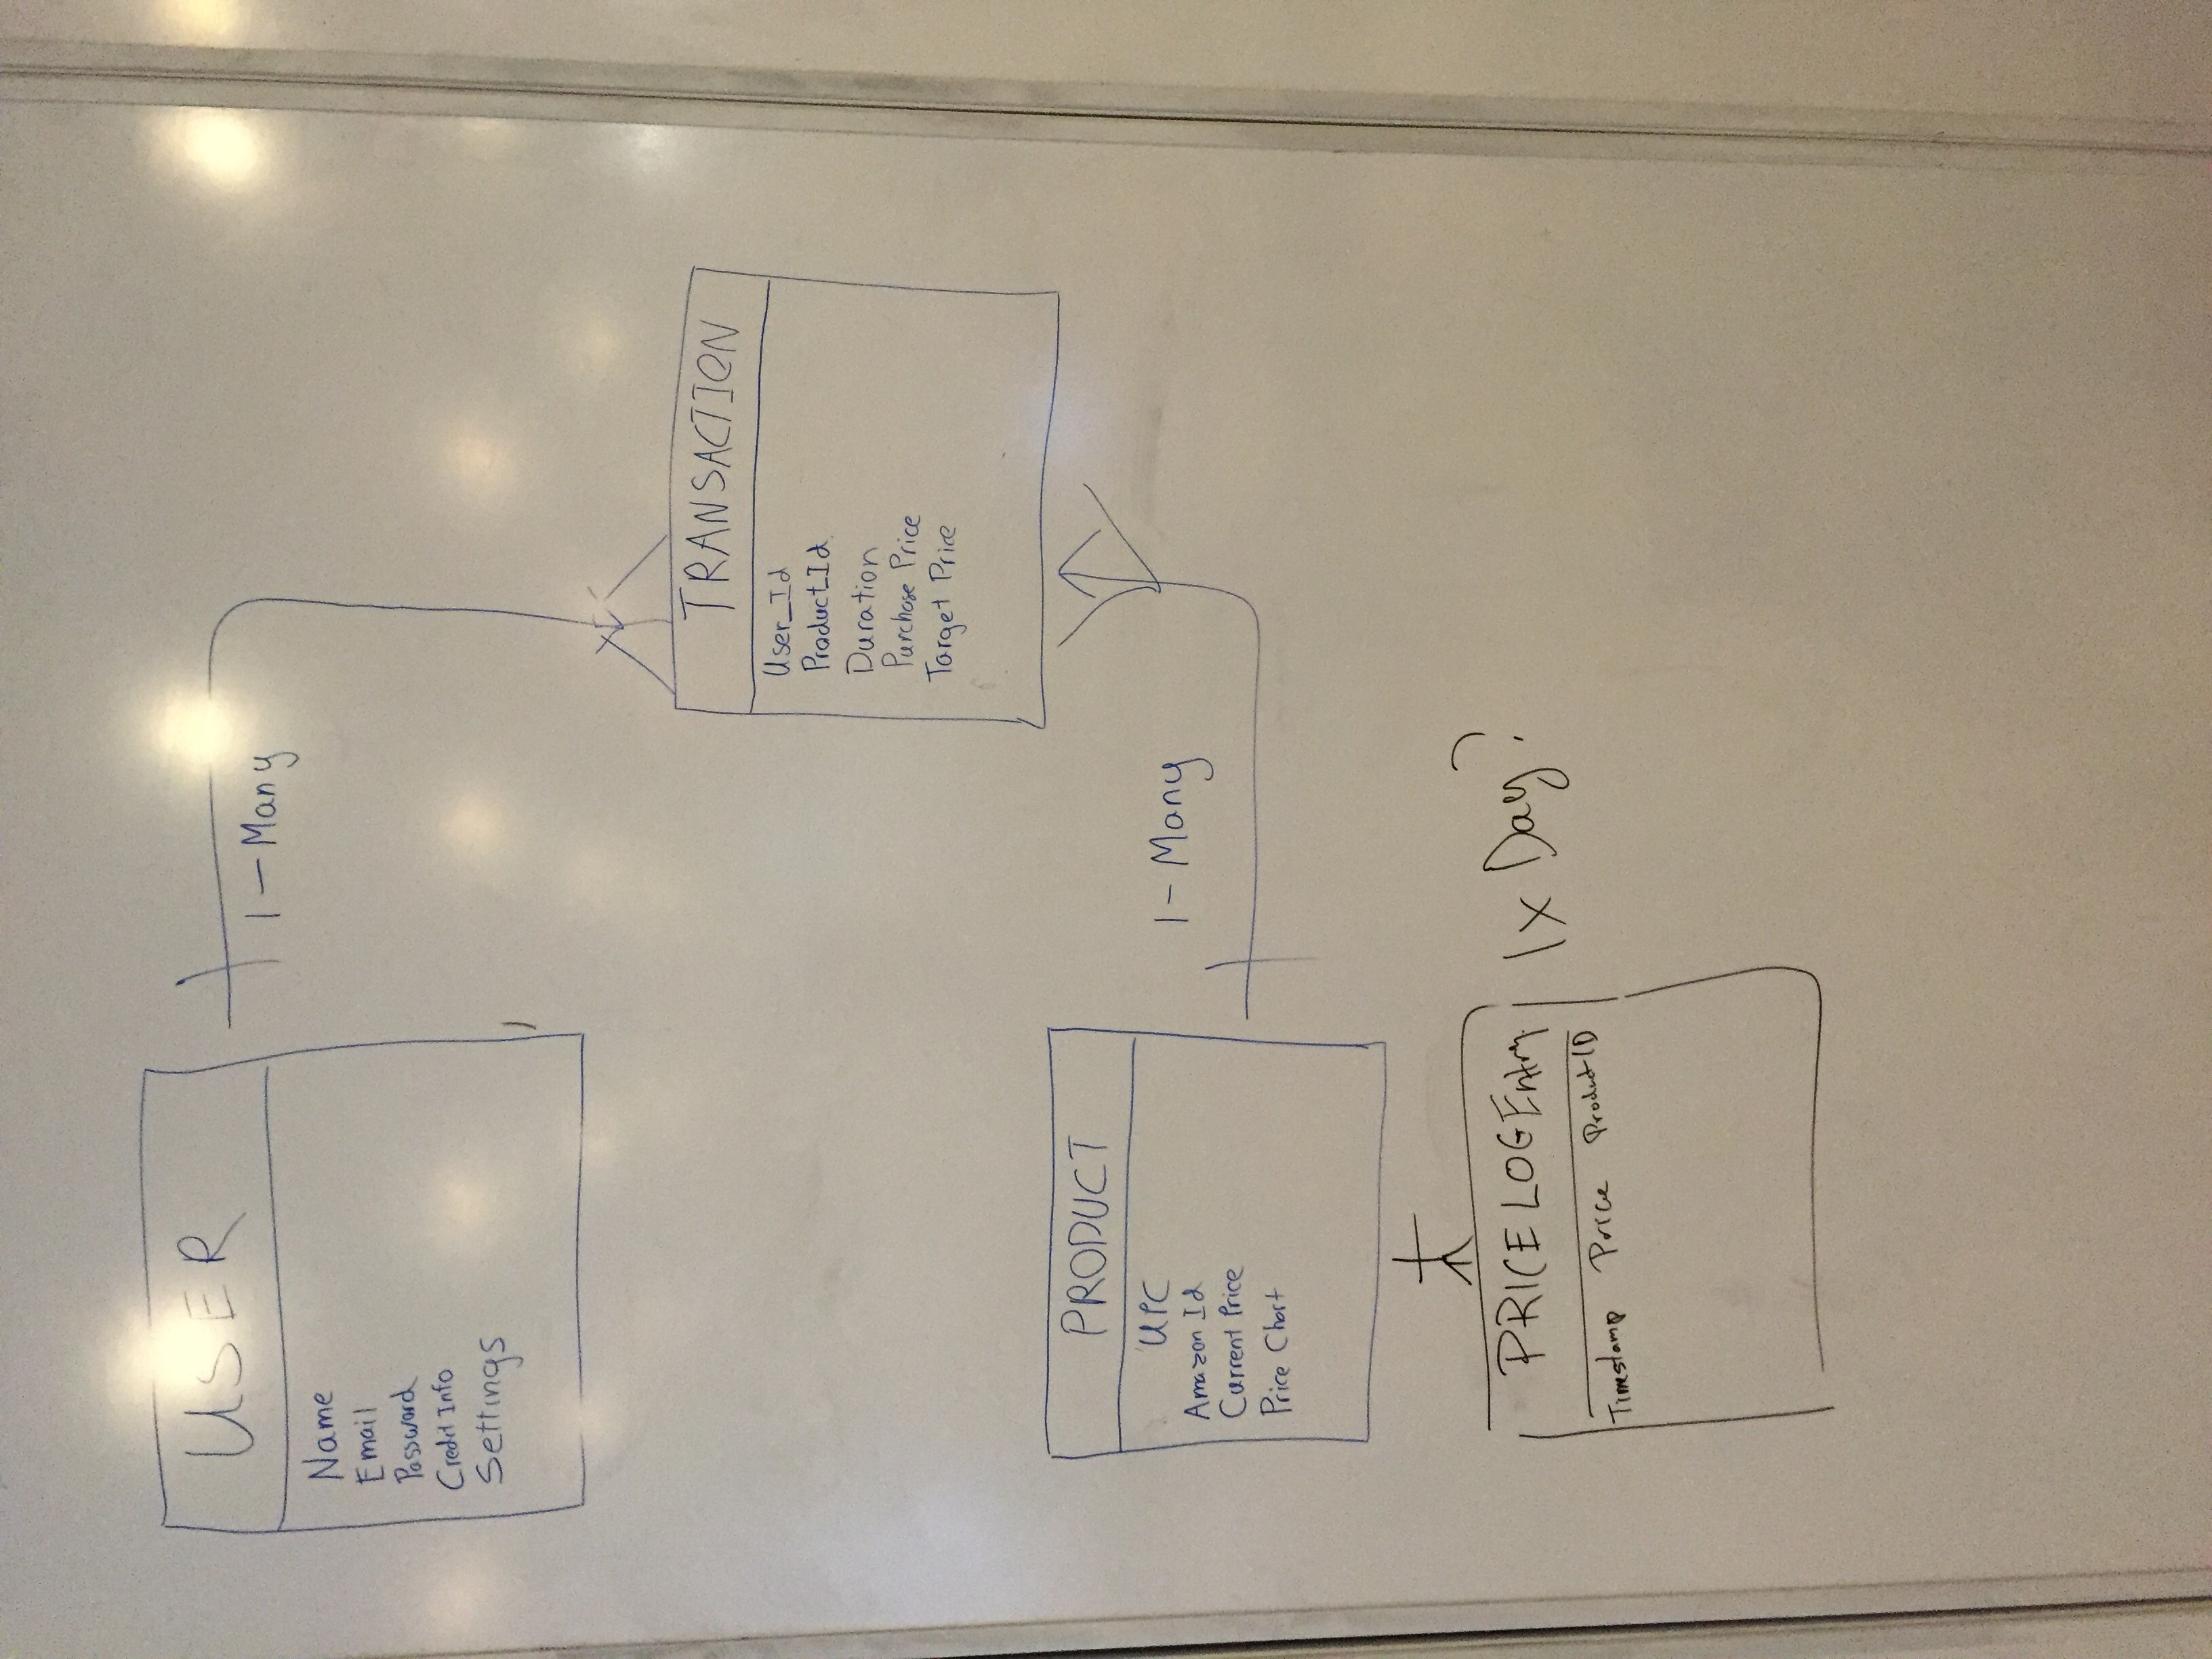 USER
1 - Many
Name
Email
Password
Credit Info
Settings
TRANSACTION
User_Id
Product_Id
Duration
Purchase Price
Target Price
PRODUCT
UPC
Amazon Id
Current Price
Price Chart
1 - Many
PRICE LOG Entry
Timestamp Price Product ID
1x Day?